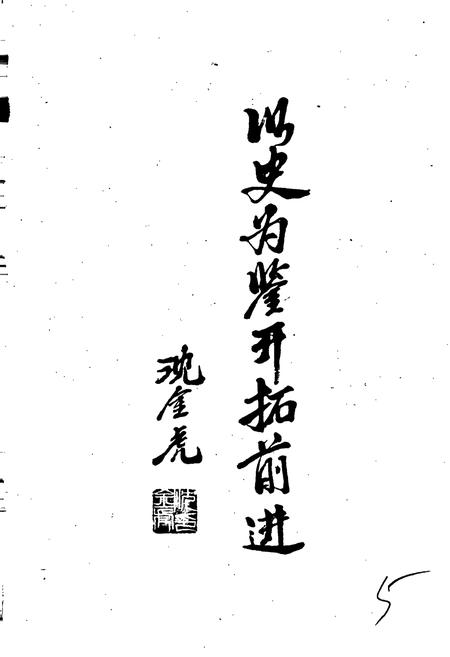 以史为鉴开拓前进
沈金虎
5